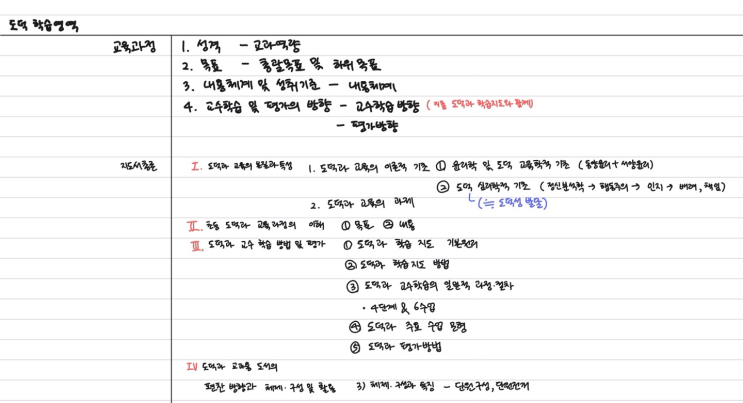 도덕 학습영역
교육과정
1. 성격 - 교과역량
2. 목표 - 총괄목표 및 하위목표
3. 내용체계 및 성취기준 - 내용체계
4. 교수학습 및 평가의 방향 - 교수학습 방향 (이를 도덕과 학습지도와 함께)
- 평가방향
지도서총론
I. 도덕과 교육의 본질과 특성 1. 도덕과 교육의 이론적 기초 ① 윤리학 및 도덕 교육학적 기초 (동양윤리+서양윤리)
② 도덕 심리학적 기초 (정신분석학 → 행동주의 → 인지 → 배려, 책임)
(≒ 도덕성 발달)
2. 도덕과 교육의 과제
II. 초등 도덕과 교육과정의 이해 ① 목표 ② 내용
III. 도덕과 교수 학습 방법 및 평가 ① 도덕과 학습 지도 기본원리
② 도덕과 학습 지도 방법
③ 도덕과 교수학습의 일반적 과정·절차
· 4단계 & 6수업
④ 도덕과 주요 수업 모형
⑤ 도덕과 평가방법
IV 도덕과 교과용 도서의
편찬 방향과 체제·구성 및 활용 3) 체제·구성과 특징 - 단원구성, 단원전개